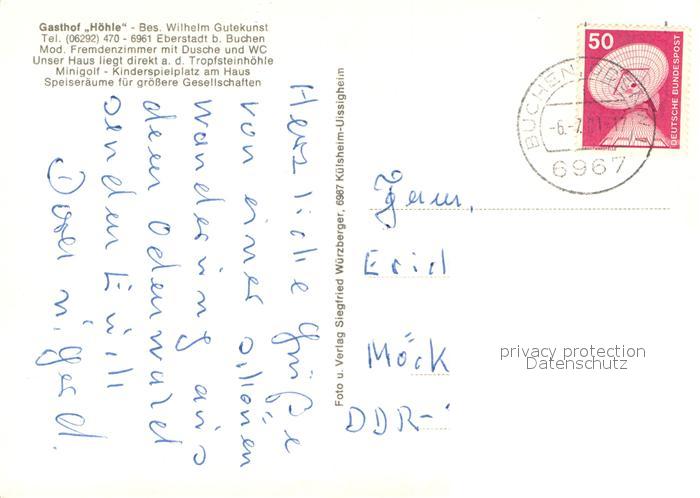 Gasthof „Höhle" - Bes. Wilhelm Gutekunst
Tel. (06292) 470 - 6961 Eberstadt b. Buchen
Mod. Fremdenzimmer mit Dusche und WC
Unser Haus liegt direkt a. d. Tropfsteinhöhle
Minigolf - Kinderspielplatz am Haus
Speiseräume für größere Gesellschaften
Herzliche Grüße
von einer schönen
Wanderung aus
dem Odenwald
senden Euch
Foto u. Verlag Siegfried Würzberger, 6987 Külsheim-Uissigheim
50
DEUTSCHE BUNDESPOST
BUCHEN
6967
Fam.
Erich
Möck
DDR-
privacy protection
Datenschutz